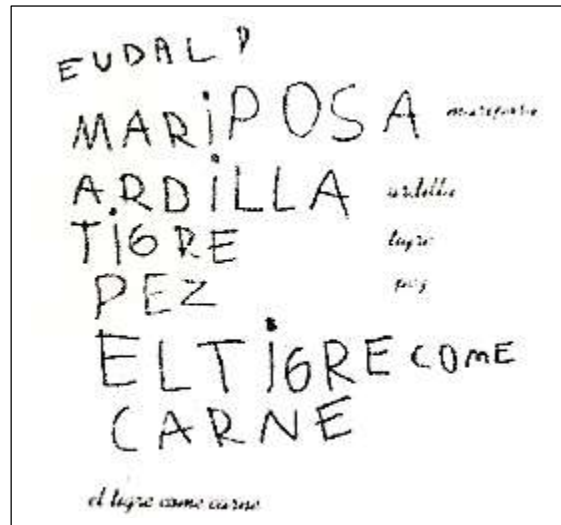 EUDALD
MARiPOSA mariposa
ARDiLLA ardilla
TiGRE tigre
PEZ pez
EL TiGRE COME
CARNE
el tigre come carne